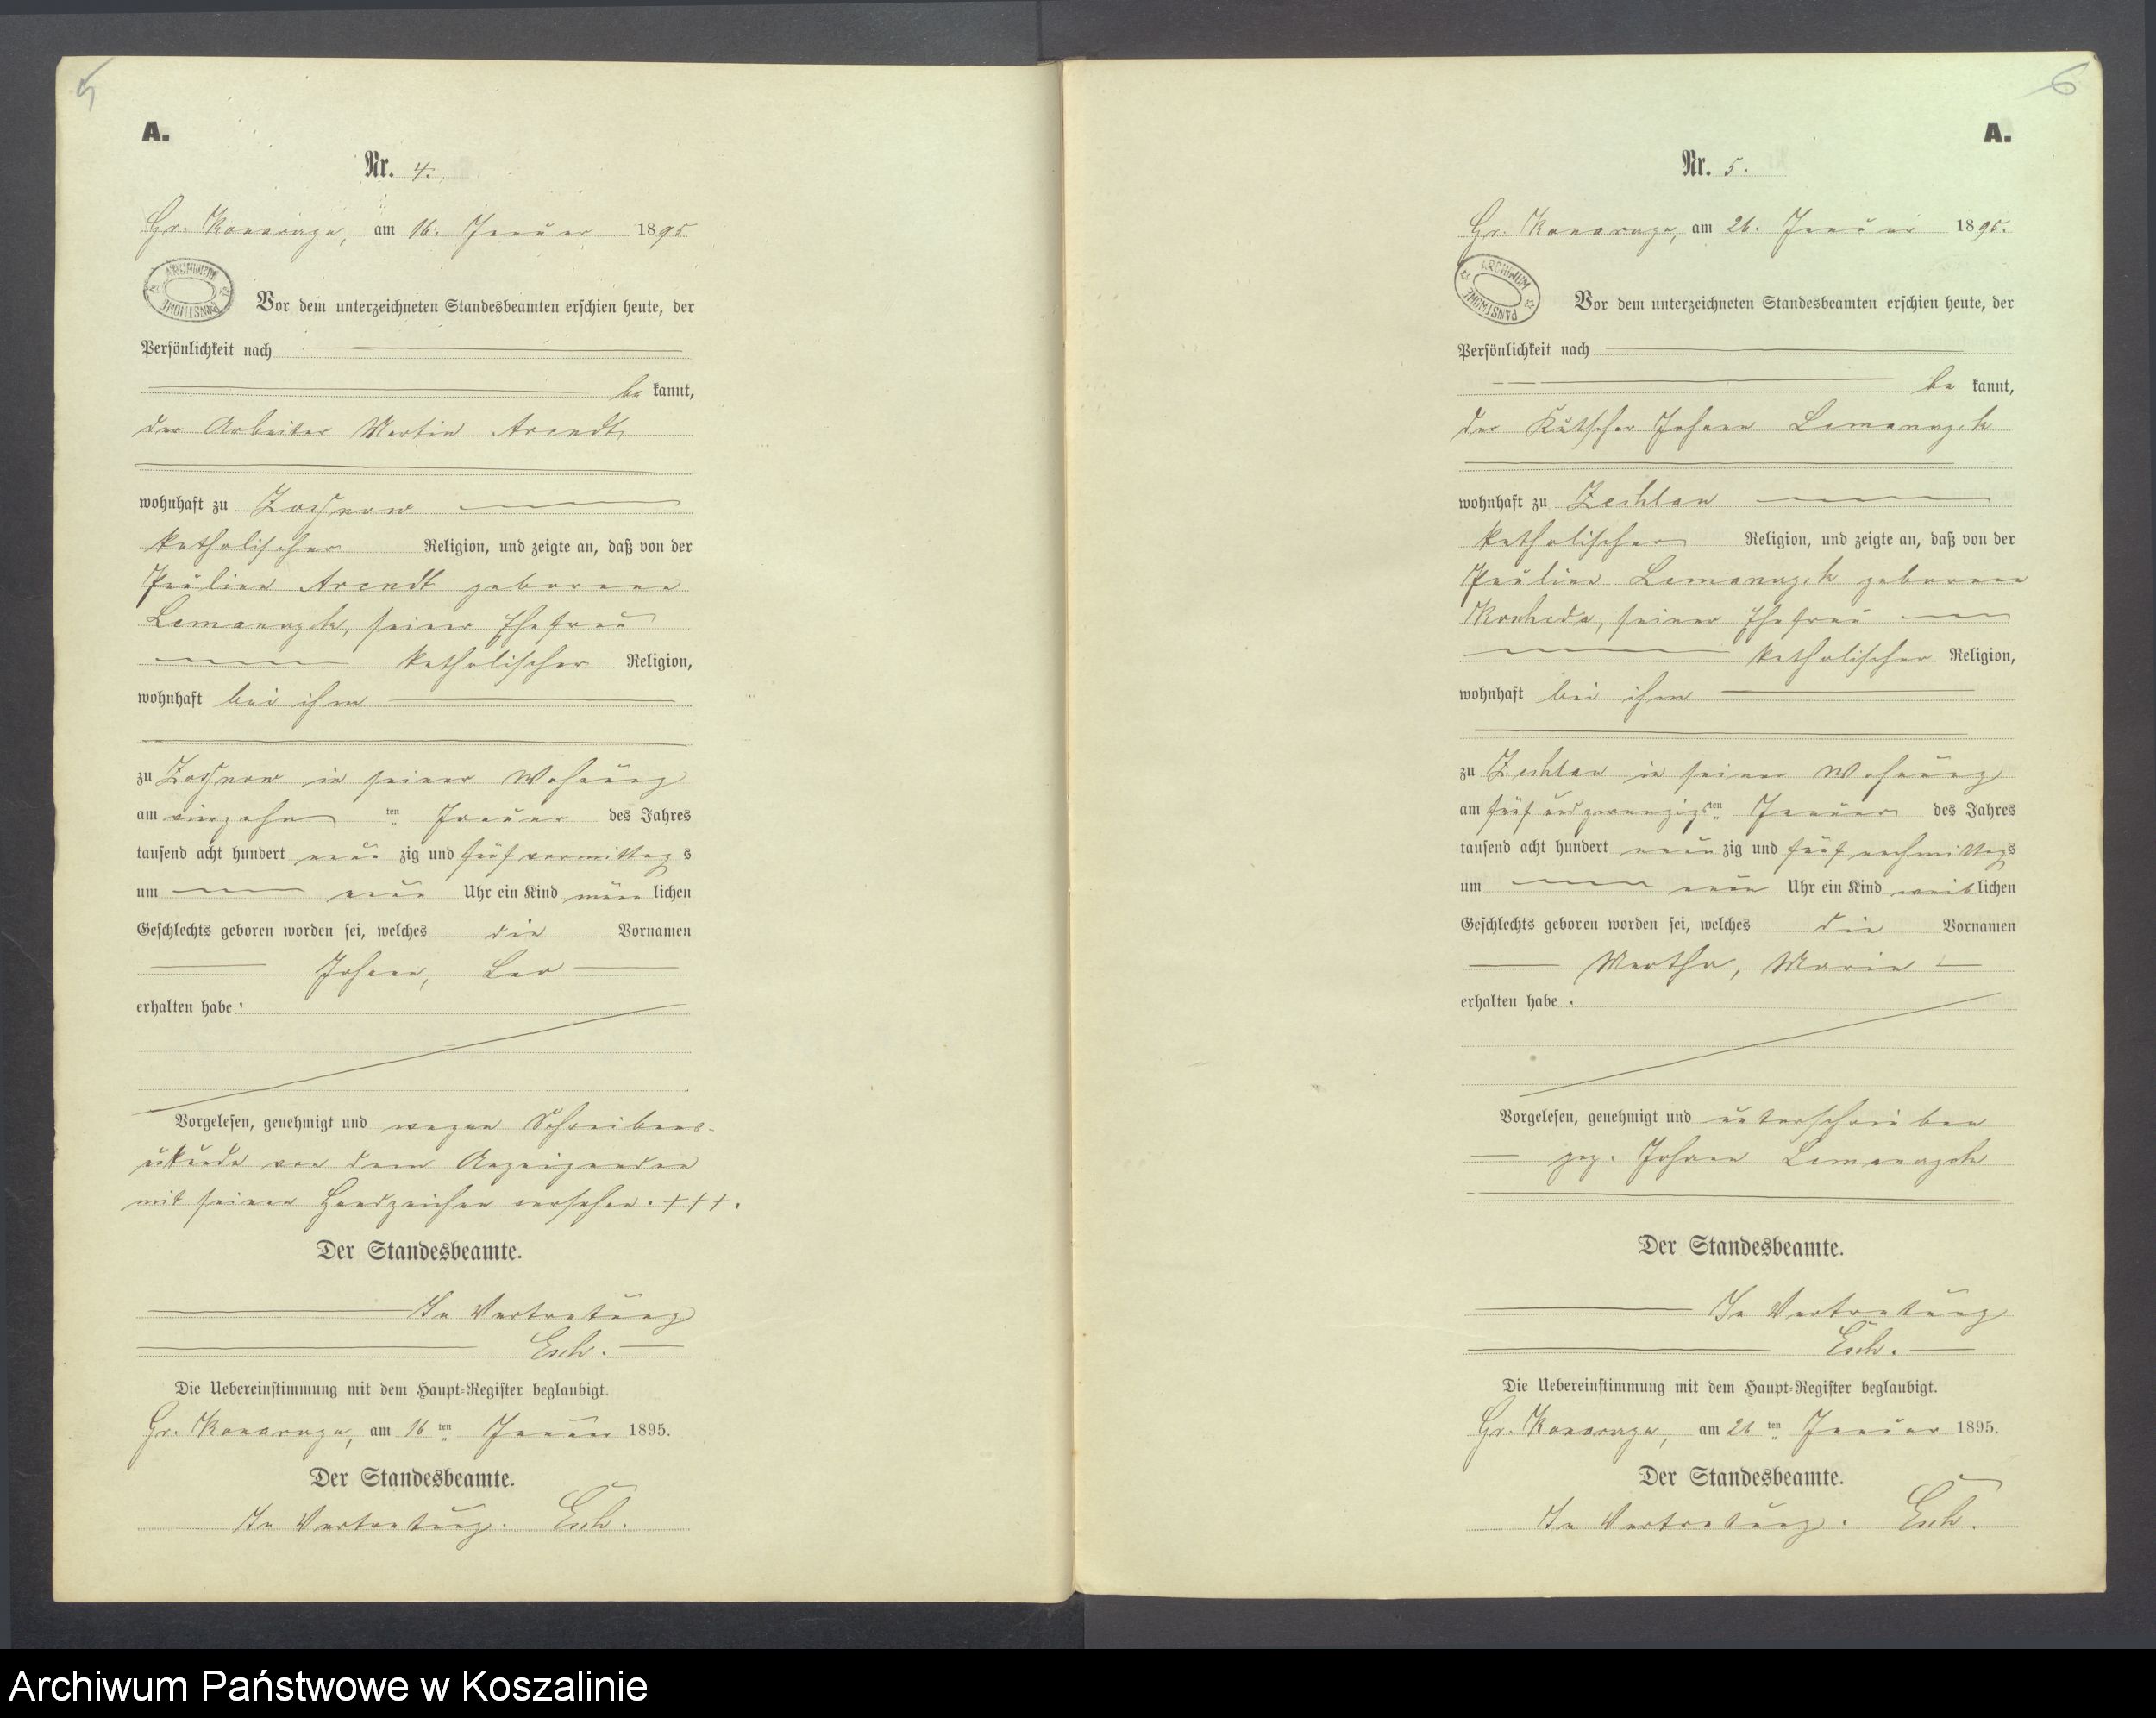 5
A.
Nr. 4.
Gr. Konarczyn, am 16. Januar 1895
ARCHIWUM PAŃSTWOWE
Vor dem unterzeichneten Standesbeamten erschien heute, der
Persönlichkeit nach
be kannt,
der Arbeiter Martin Arendt
wohnhaft zu
katholischer Religion, und zeigte an, daß von der
Pauline Arendt geborene
Lemanczyk, seiner Ehefrau
katholischer Religion,
wohnhaft bei ihm
zu in seiner Wohnung
am vierzehn ten Januar des Jahres
tausend acht hundert neun zig und fünf vormittag s
um neun Uhr ein Kind männ lichen
Geschlechts geboren worden sei, welches die Vornamen
Johann, Leo
erhalten habe.
Vorgelesen, genehmigt und wegen Schreibens-
unkunde von dem Anzeigenden
mit seinen Handzeichen versehen. +++.
Der Standesbeamte.
In Vertretung
Esch.
Die Uebereinstimmung mit dem Haupt-Register beglaubigt.
am 16 ten Januar 1895.
Der Standesbeamte.
In Vertretung. Esch.
6
A.
Nr. 5.
am 26. Januar 1895.
ARCHIWUM PAŃSTWOWE
Vor dem unterzeichneten Standesbeamten erschien heute, der
Persönlichkeit nach
be kannt,
der Kutscher Johann Lemanczyk
wohnhaft zu Zechlau
katholischer Religion, und zeigte an, daß von der
Pauline Lemanczyk geborene
seiner Ehefrau
katholischer Religion,
wohnhaft bei ihm
zu Zechlau in seiner Wohnung
am fünf und zwanzigs ten Januar des Jahres
tausend acht hundert neun zig und fünf nachmittags
um neun Uhr ein Kind weib lichen
Geschlechts geboren worden sei, welches die Vornamen
Martha, Marie
erhalten habe.
Vorgelesen, genehmigt und unterschrieben
gez. Johann Lemanczyk
Der Standesbeamte.
In Vertretung
Esch.
Die Uebereinstimmung mit dem Haupt-Register beglaubigt.
am 26 ten Januar 1895.
Der Standesbeamte.
In Vertretung. Esch.
Archiwum Państwowe w Koszalinie